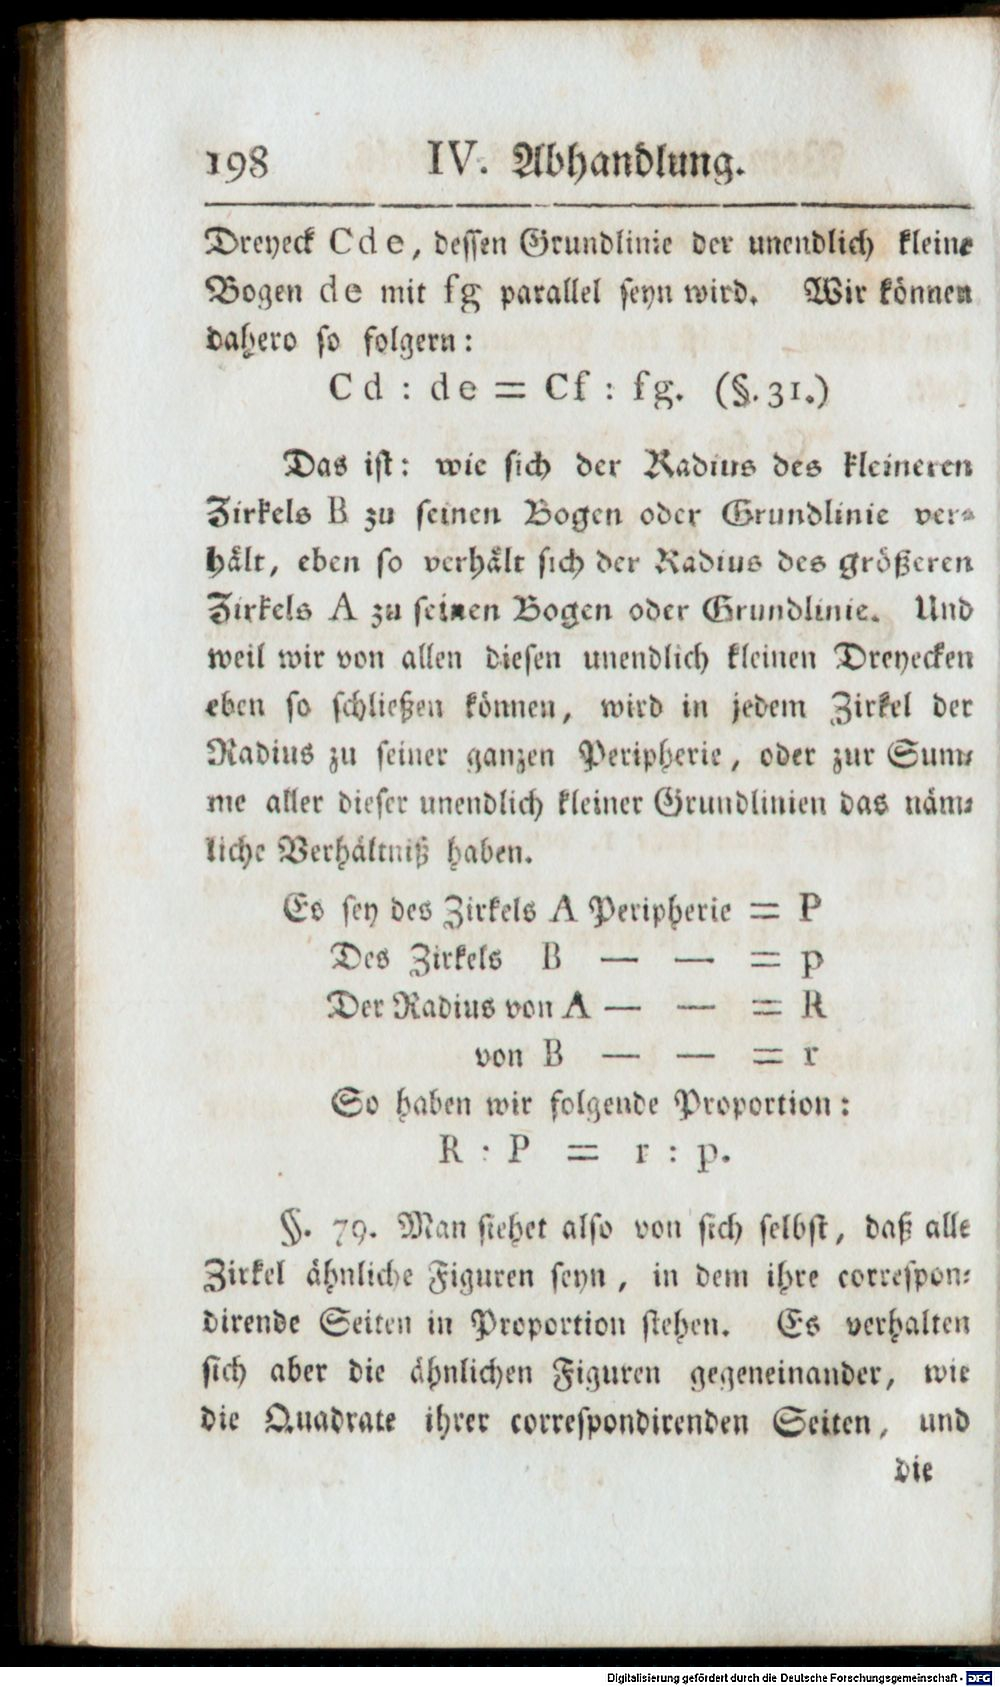 198 IV. Abhandlung.
Dreyeck Cde, dessen Grundlinie der unendlich kleine
Bogen de mit fg parallel seyn wird. Wir können
dahero so folgern:
Cd : de = Cf : fg. (§. 31.)
Das ist: wie sich der Radius des kleineren
Zirkels B zu seinen Bogen oder Grundlinie ver-
hält, eben so verhält sich der Radius des größeren
Zirkels A zu seinen Bogen oder Grundlinie. Und
weil wir von allen diesen unendlich kleinen Dreyecken
eben so schließen können, wird in jedem Zirkel der
Radius zu seiner ganzen Peripherie, oder zur Sum-
me aller dieser unendlich kleiner Grundlinien das näm-
liche Verhältniß haben.
Es sey des Zirkels A Peripherie = P
Des Zirkels B — — = p
Der Radius von A — — = R
von B — — = r
So haben wir folgende Proportion:
R : P = r : p.
§. 79. Man siehet also von sich selbst, daß alle
Zirkel ähnliche Figuren seyn, in dem ihre correspon-
dirende Seiten in Proportion stehen. Es verhalten
sich aber die ähnlichen Figuren gegeneinander, wie
die Quadrate ihrer correspondirenden Seiten, und
die
Digitalisierung gefördert durch die Deutsche Forschungsgemeinschaft - DFG